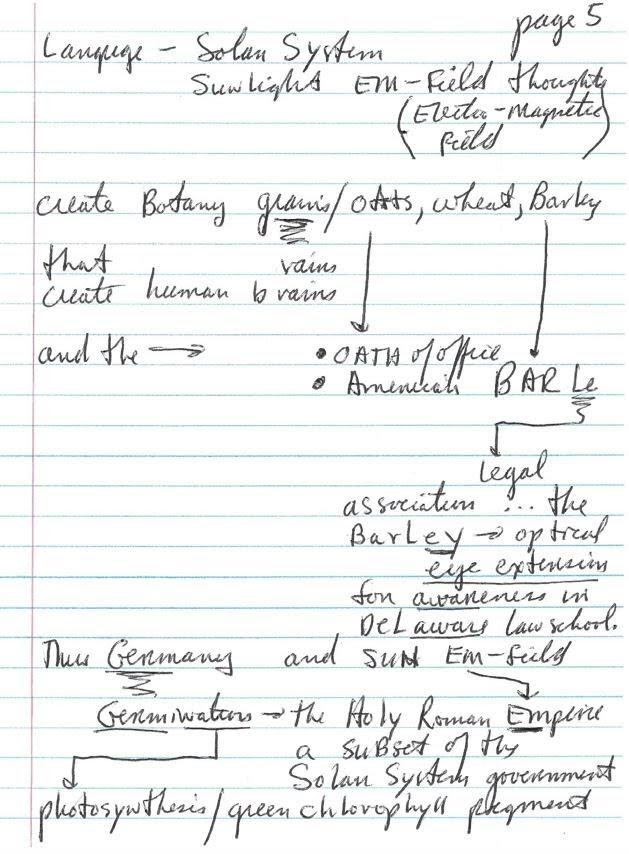 page 5
Languge - Solar System
Sunlight EM-Field thoughts
(Electro-Magnetic
Field)
create Botany grains/OAts, wheat, Barley
that rains
create human brains
and the → • OATH of office
• American BAR Le
Legal
association ... the
BarLey → optical
eye extension
for awareness in
DeLaware law school.
Thus Germany and SUN EM-field
Germination → the Holy Roman Empire
a subset of the
Solar System government
photosynthesis/green chlorophyll pigment